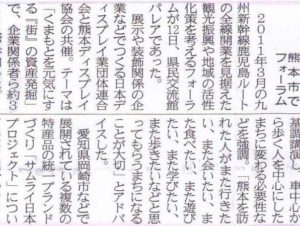 熊本市で
フォーラム
2011年3月の九
州新幹線鹿児島ルート
の全線開業を見据えた
観光振興や地域の活性
化策を考えるフォーラ
ムが12日、県民交流館
パレアであった。
展示や装飾関係の企
業などでつくる日本デ
ィスプレイ業団体連合
会と熊本ディスプレイ
協会の共催。テーマは
「くまもとを元気にす
る『街』の資産発掘」
で、企業関係者ら約3
基調講演し、車中心か
ら歩く人を中心にした
まちに変わる必要性な
どを強調。「熊本を訪
れた人がまた行きた
い、また会いたい、ま
た食べたい、また遊び
たい、また学びたい、
また歩きたいなどと思
ってもらうまちになる
ことが大切」とアドバ
イスした。
愛知県岡崎市などで
展開されている複数の
特産品の統一ブランド
づくり「サムライ日本
プロジェクト」につい